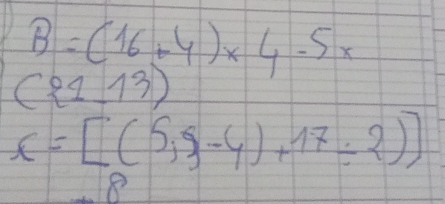 B = (16 + 4) × 4 - 5 ×
(21 - 13)
x = [(5,5 - 4) + 17 ÷ 2)]
÷ 8